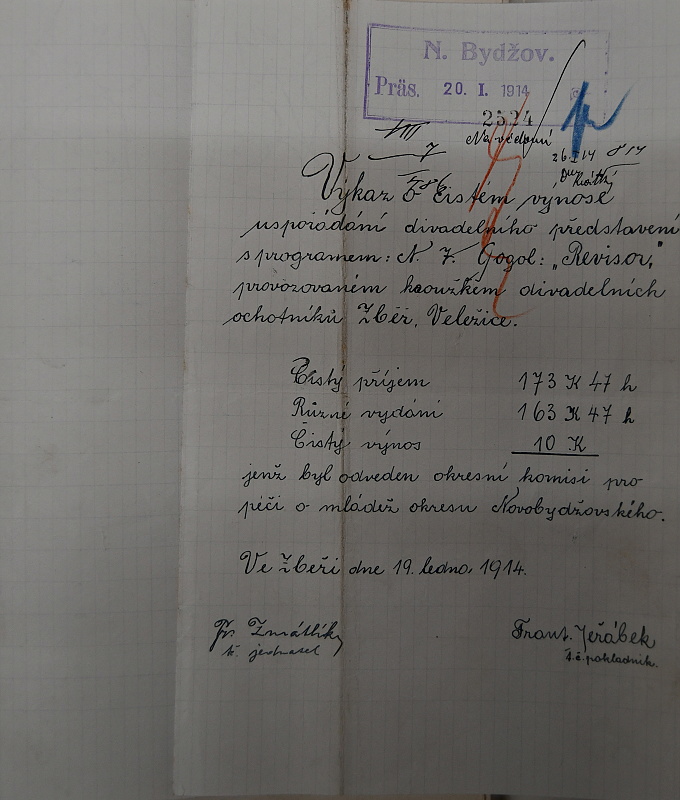 N. Bydžov.
Präs. 20. I. 1914
2524
Na vědomí
VIII
7
26.I 14 814
Výkaz o čistém výnose
uspořádání divadelního představení
s programem: N. V. Gogol: „Revisor,"
provozovaném kroužkem divadelních
ochotníků Zběř, Veležice.
Čistý příjem 173 K 47 h
Různé vydání 163 K 47 h
Čistý výnos 10 K
jenž byl odveden okresní komisi pro
péči o mládež okresu Novobydžovského.
Ve Zběři dne 19. ledna, 1914.
Fr. Zmátlík
Frant. Jeřábek
t. jednatel
t.č. pokladník.